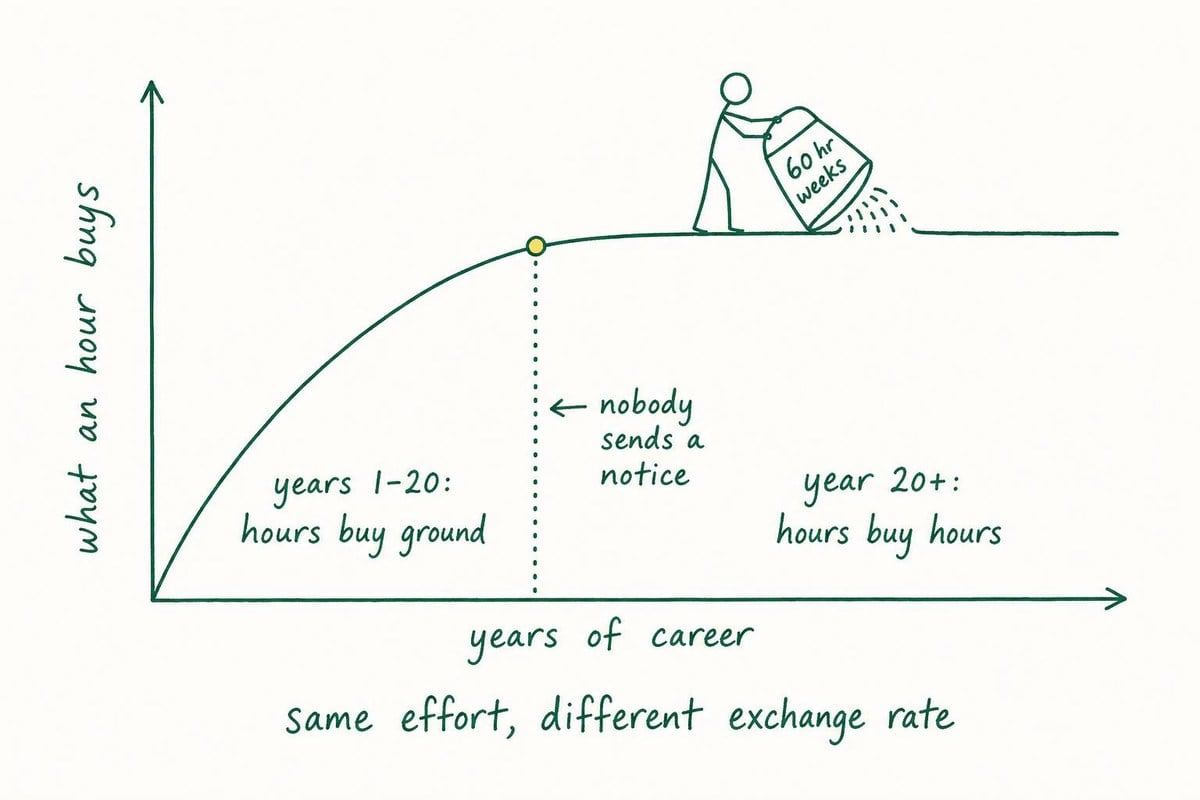 what an hour buys
60 hr
weeks
nobody
sends a
notice
years 1-20:
hours buy ground
year 20+:
hours buy hours
years of career
same effort, different exchange rate